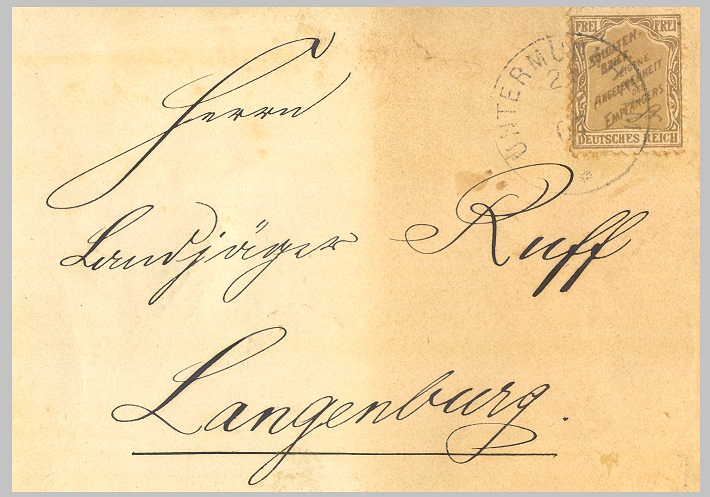 FREI FREI
SOLDATEN-
BRIEF
EIGENE
ANGELEGENHEIT
DES
EMPFÄNGERS
DEUTSCHES REICH
UNTERMÜ
Herrn
Landjäger Ruff
Langenburg.